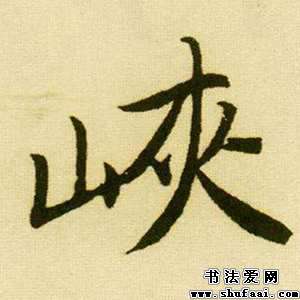 峽
书法爱网
www.shufaai.com